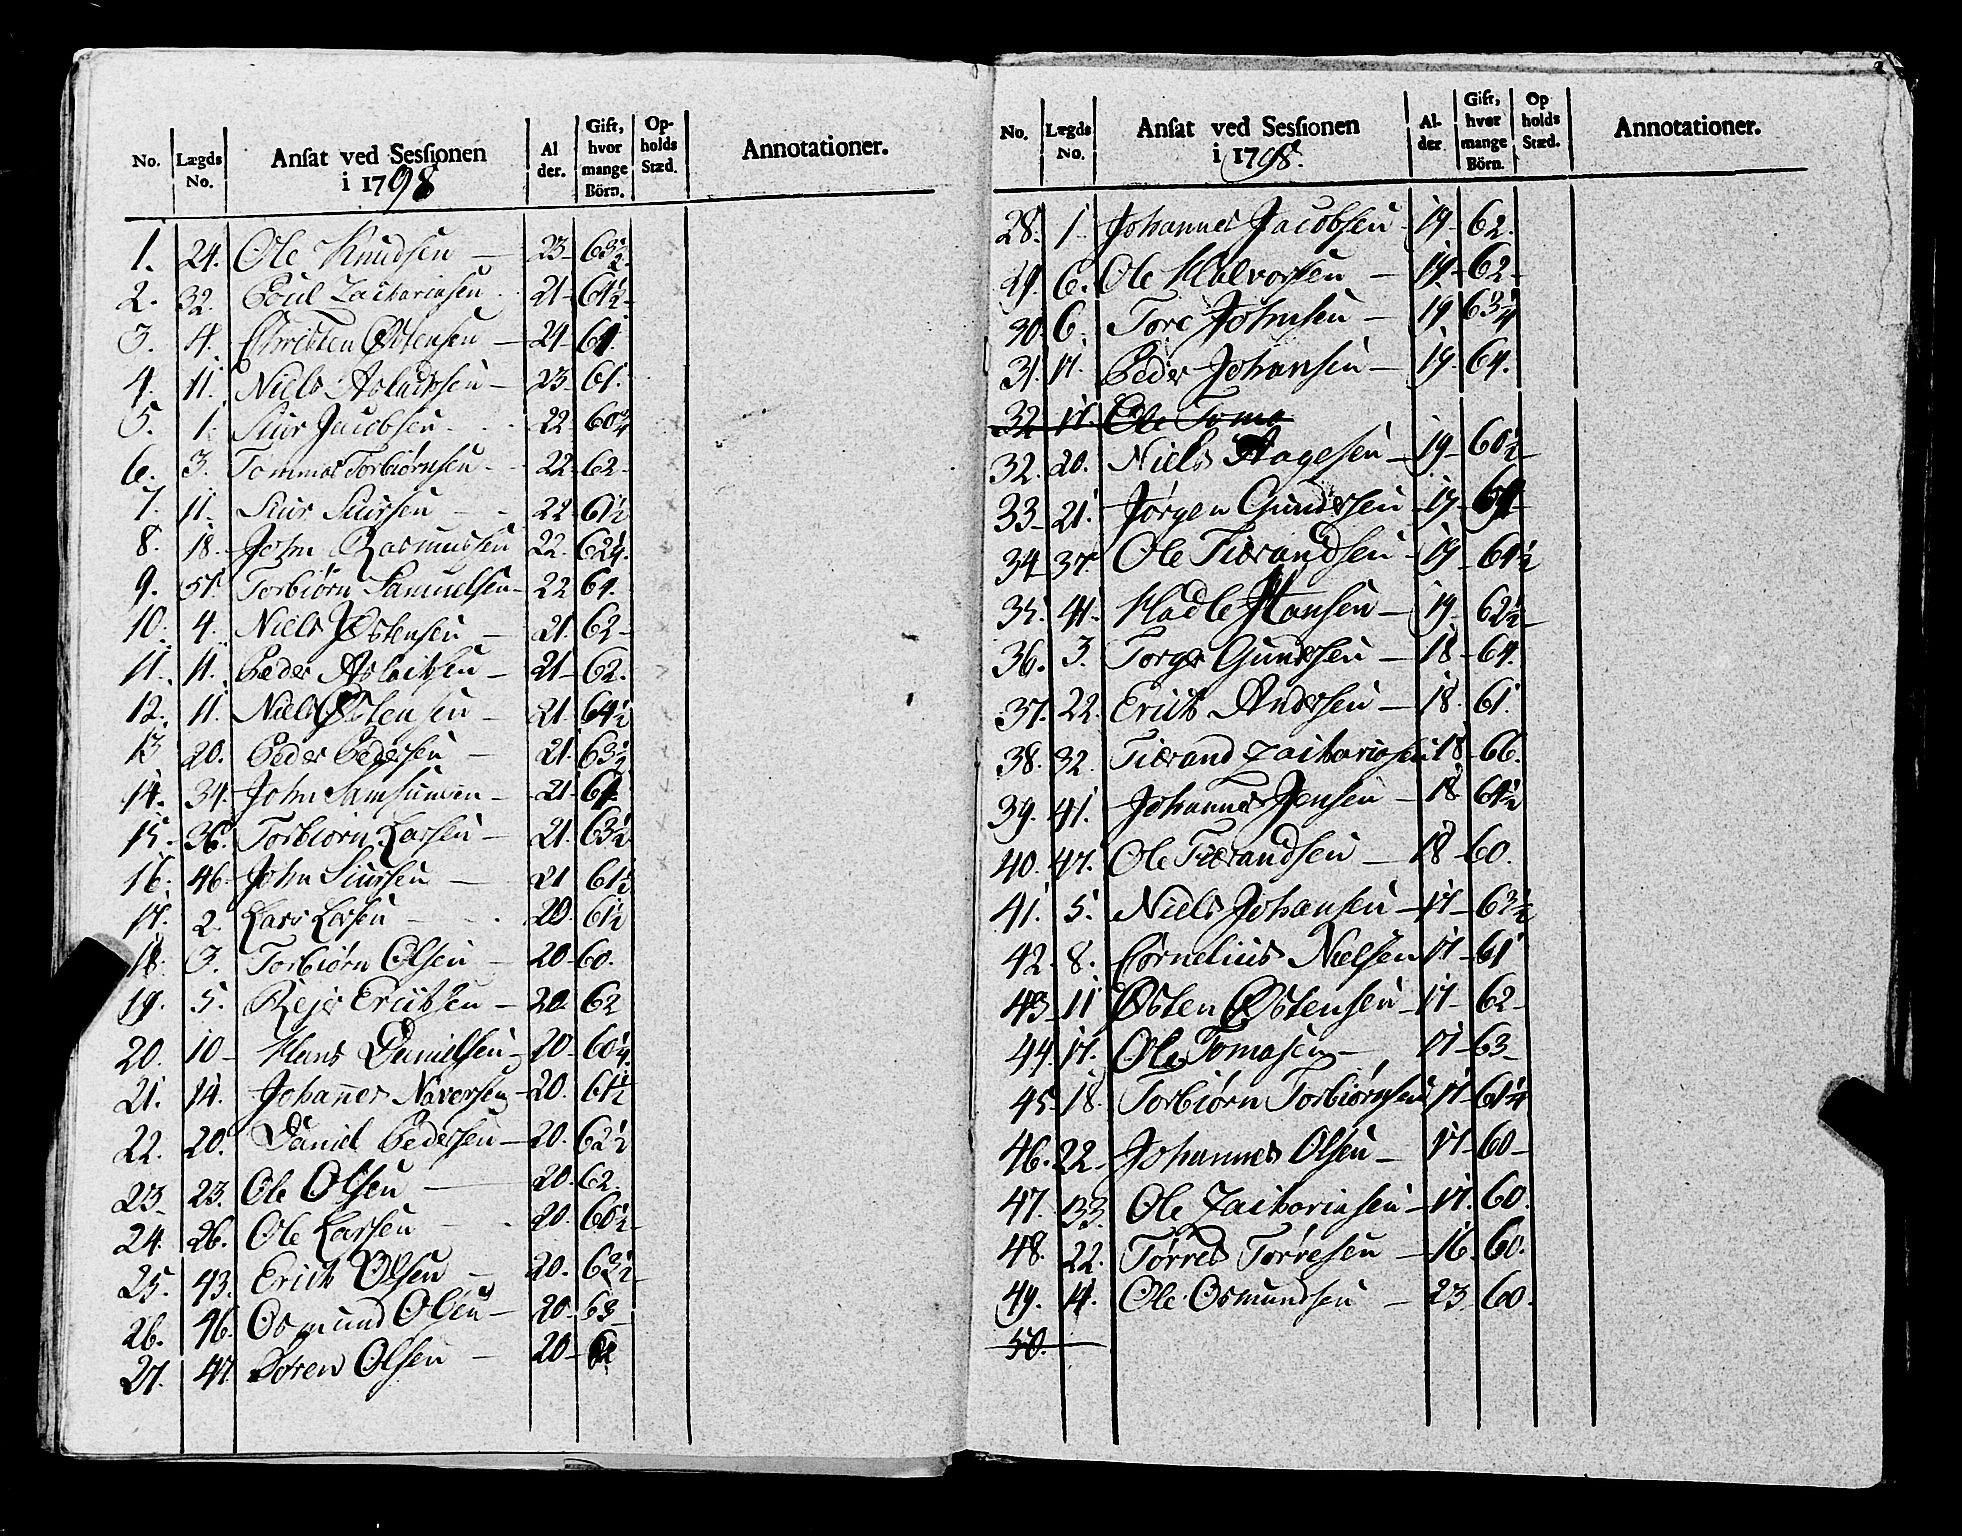 No. Lægds No. Ansat ved Sessionen i 1798 Alder. Gift, hvor mange Börn. Opholds Stæd. Annotationer.
1. 24. Ole Knudsen — 23 — 63½
2. 32. Poul Zachariasen 21 — 61½
3. 4. Christen Østensen — 21 — 61
4. 11. Niels Aslachsen — 23 61.
5. 1. Siur Jacobsen 22 60¾
6. 3. Tommas Torbiørnsen 22 — 62 —
7. 11. Siur Siursen 22 61½
8. 18. John Rasmussen 22. 62¼.
9. 57. Torbiørn Samuelsen — 22 64.
10. 4. Niels Østensen — 21. 62 —
11. 11. Peder Aslachsen — 21 — 62.
12. 11. Niels Østensen — 21. 64½
13 20. Peder Pedersen — 21. 63½
14. 34. John Samsunsen — 21 — 64
15. 36. Torbiorn Larsen — 21. 63½
16. 46. John Siursen — 21 61½
17. 2. Lars Larsen 20. 61½
18. 3. Torbiørn Olsen — 20 — 60.
19. 5. Rejer Erichsen — 20. 62
20. 10 — Hans Danielsen — 20 — 60¼
21. 14. Johannes Naversen — 20. 61½
22. 20. Daniel Pedersen — 20. 62½
23 — 23. Ole Olsen — 20. 62.
24. 26. Ole Larsen 20. 60½
25. 43. Erich Olsen — 20. 63½
26. 46. Osmund Olsen — 20 — 63 —
27. 47. Søren Olsen — 20 —
No. Lægds No. Ansat ved Sessionen i 1798. Alder. Gift, hvor mange Börn. Opholds Stæd. Annotationer.
28. 1. Johannes Jacobsen 19 62.
29. 6. Ole Halvorsen — 19 — 62 —
30. 6. Tore Johnsen — 19 63¼
31. 17. Peder Johansen — 19. 64.
32 17. Ole Toma
32. 20. Niels Aagesen — 19 — 60½
33 — 21. Jørgen Gundersen — 19 —
34 37. Ole Tiærandsen — 19 — 64½
35. 41. Hadle Hansen — 19 — 62½
36. 3. Torger Gundersen — 18 — 64.
37. 22. Erich Andersen — 18. 61.
38. 32. Tiærand Zachariasen 18 — 66.
39. 41. Johannes Jensen — 18 64½
40. 47. Ole Tiærandsen — 18 — 60.
41. 5. Niels Johansen — 17 — 63½
42. 8. Cornelius Nielsen 17 — 61
43 — 11 Østen Østensen — 17 — 62 —
44. 17. Ole Tomasen — 17 — 63 —
45 — 18. Torbiørn Torbiørnsen 17 — 61¼
46. 22 — Johannes Olsen — 17 — 60 —
47. 33. Ole Zachariasen — 17. 60.
48. 22. Tørres Torresen — 16. 60.
49. 11. Ole Osmundsen — 23 60.
50.